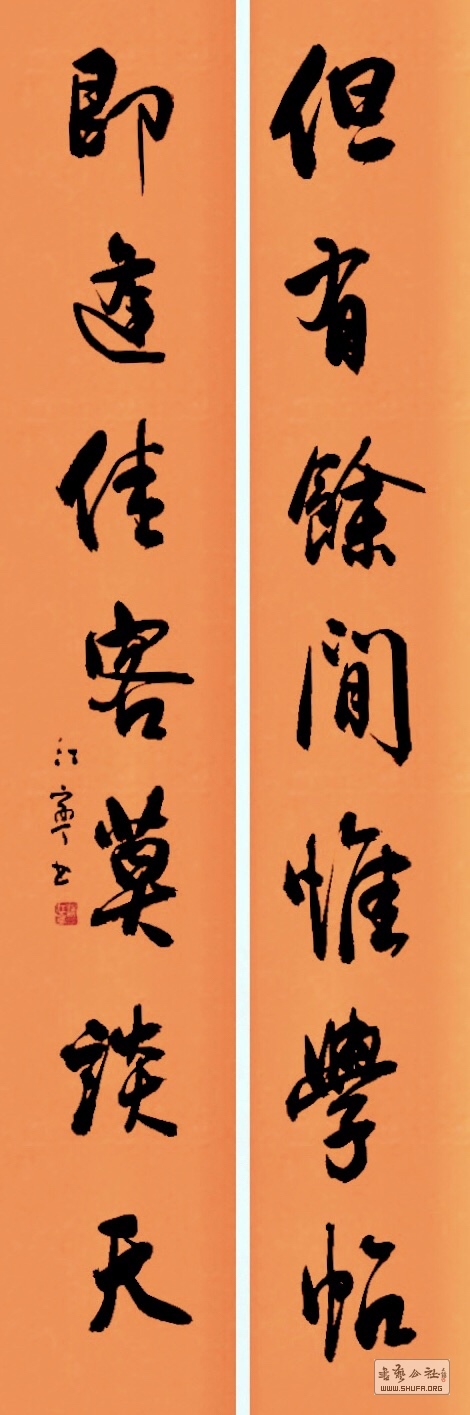 但有餘閒惟學帖
即逢佳客莫談天
江寧書
書藝公社
WWW.SHUFA.ORG